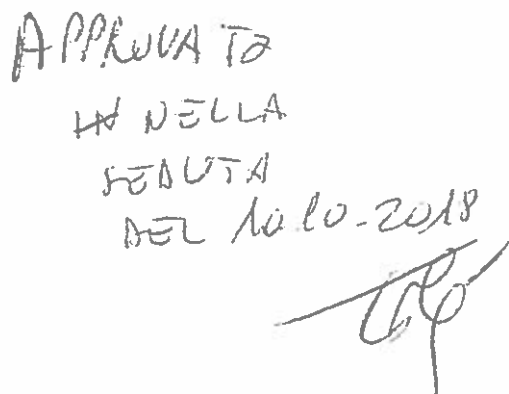 APPROVATO
NELLA
SEDUTA
DEL 10.10-2018